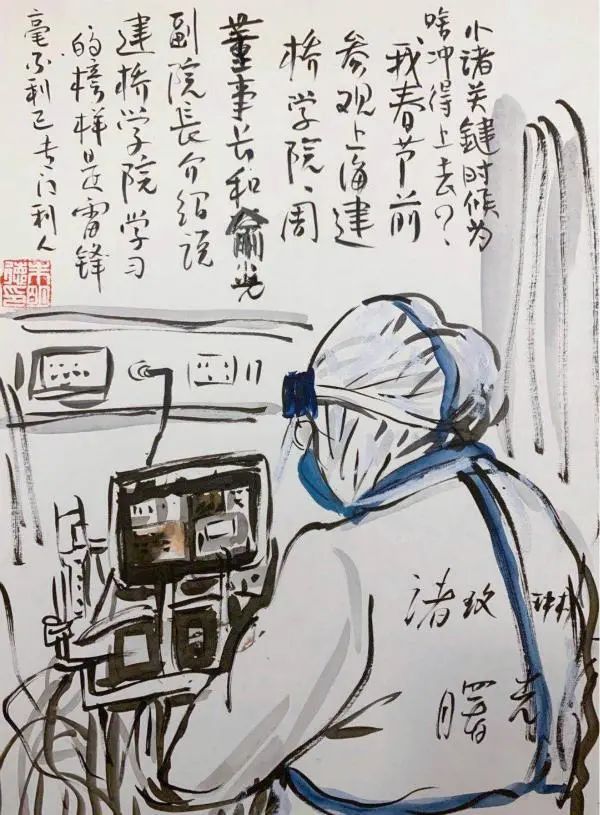 小诸关键时候为
啥冲得上去?
我春节前
参观上海建
桥学院,周
董事长和俞光
副院長介绍说
建桥学院学习
的榜样是雷锋
毫不利己专门利人
诸玫琳
曙光